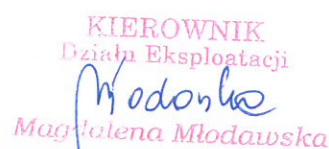 KIEROWNIK
Działu Eksploatacji
Młodawska
Magdalena Młodawska